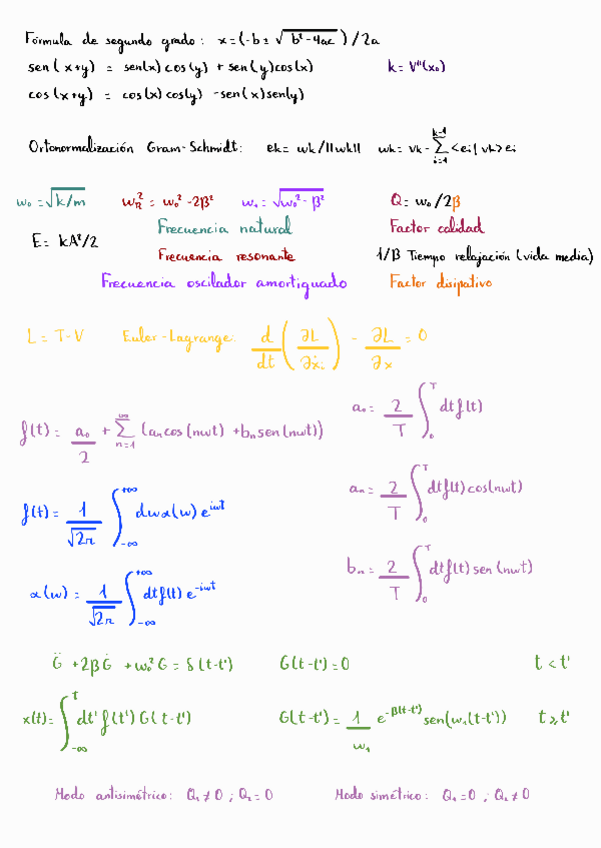 Fórmula de segundo grado: x=(-b±√b²-4ac)/2a
sen(x+y) = sen(x)cos(y) + sen(y)cos(x) k=V''(x₀)
cos(x+y) = cos(x)cos(y) -sen(x)sen(y)
Ortonormalización Gram-Schmidt: ek= wk/||wk|| wk= vk-∑_{i=1}^{k-1}<ei|vk>ei
w₀=√k/m w_R²= w₀²-2β² w₁=√w₀²-β² Q=w₀/2β
Frecuencia natural Factor calidad
E= kA²/2 Frecuencia resonante 1/β Tiempo relajación (vida media)
Frecuencia oscilador amortiguado Factor disipativo
L=T-V Euler-Lagrange: d/dt(∂L/∂ẋᵢ) - ∂L/∂x = 0
f(t)= a₀/2 + ∑_{n=1}^{∞}(aₙcos(nwt) +bₙsen(nwt)) a₀= 2/T ∫₀ᵀ dtf(t)
aₙ= 2/T ∫₀ᵀ dtf(t)cos(nwt)
f(t)= 1/√2π ∫_{-∞}^{+∞} dwα(w)e^{iwt}
bₙ= 2/T ∫₀ᵀ dtf(t)sen(nwt)
α(w)= 1/√2π ∫_{-∞}^{+∞} dtf(t)e^{-iwt}
G̈ +2βĠ +w₀²G = δ(t-t') G(t-t')=0 t<t'
x(t)=∫_{-∞}^{t} dt'f(t')G(t-t') G(t-t')= 1/w₁ e^{-β(t-t')}sen(w₁(t-t')) t≥t'
Modo antisimétrico: Q₁≠0; Q₂=0 Modo simétrico: Q₁=0; Q₂≠0